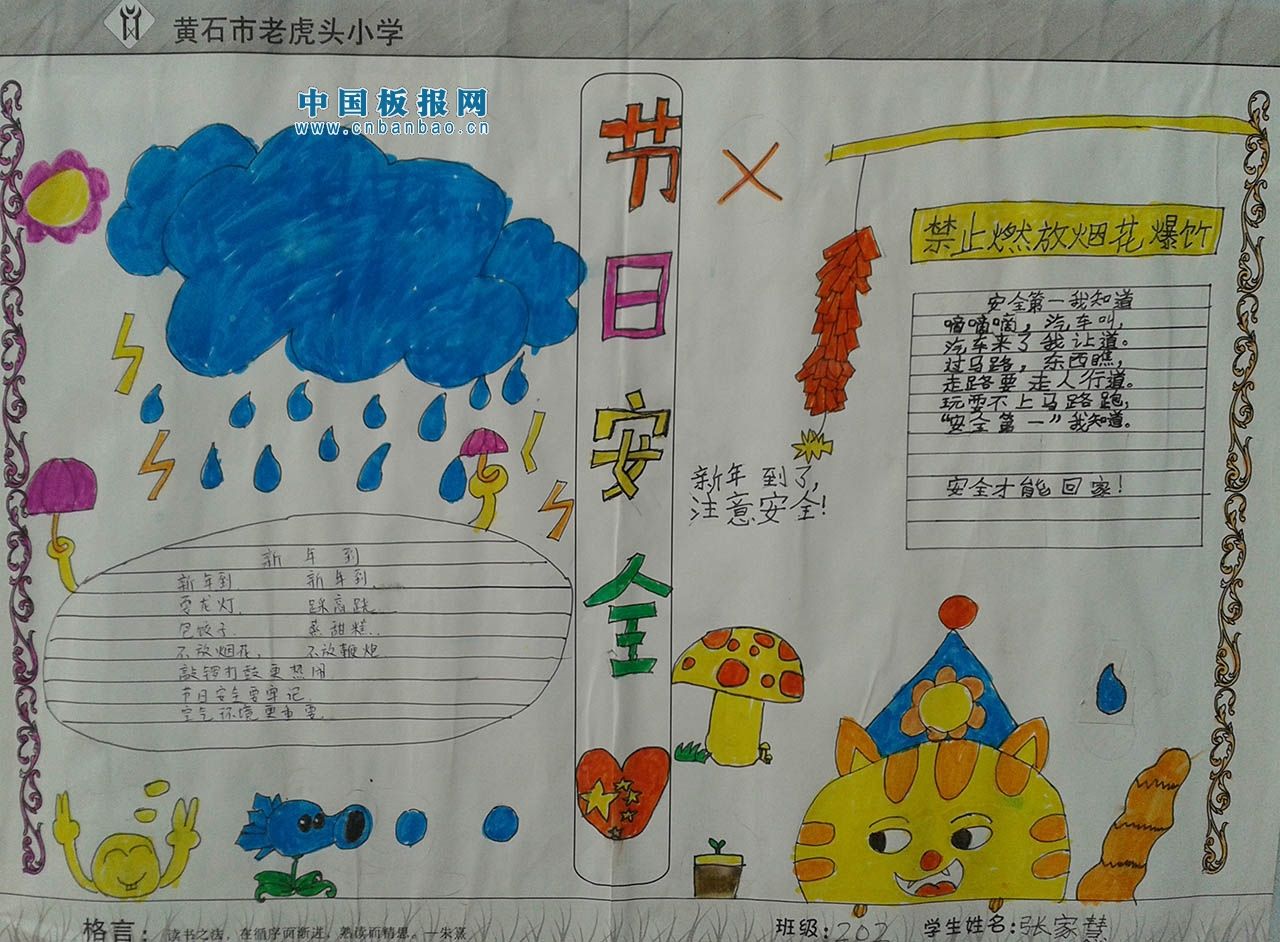 黄石市老虎头小学
中国板报网
www.cnbanbao.cn
节日安全
禁止燃放烟花爆竹
安全第一我知道
嘀嘀嘀，汽车叫，
汽车来了我让道。
过马路，东西瞧，
走路要走人行道。
玩耍不上马路跑，
“安全第一”我知道。
安全才能回家！
新年到了，
注意安全！
新年到
新年到 新年到
耍龙灯 踩高跷
包饺子 蒸甜糕
不放烟花， 不放鞭炮
敲锣打鼓更热闹
节日安全要牢记
空气环境更重要
格言：读书之法，在循序而渐进，熟读而精思。—朱熹
班级：202 学生姓名：张家慧